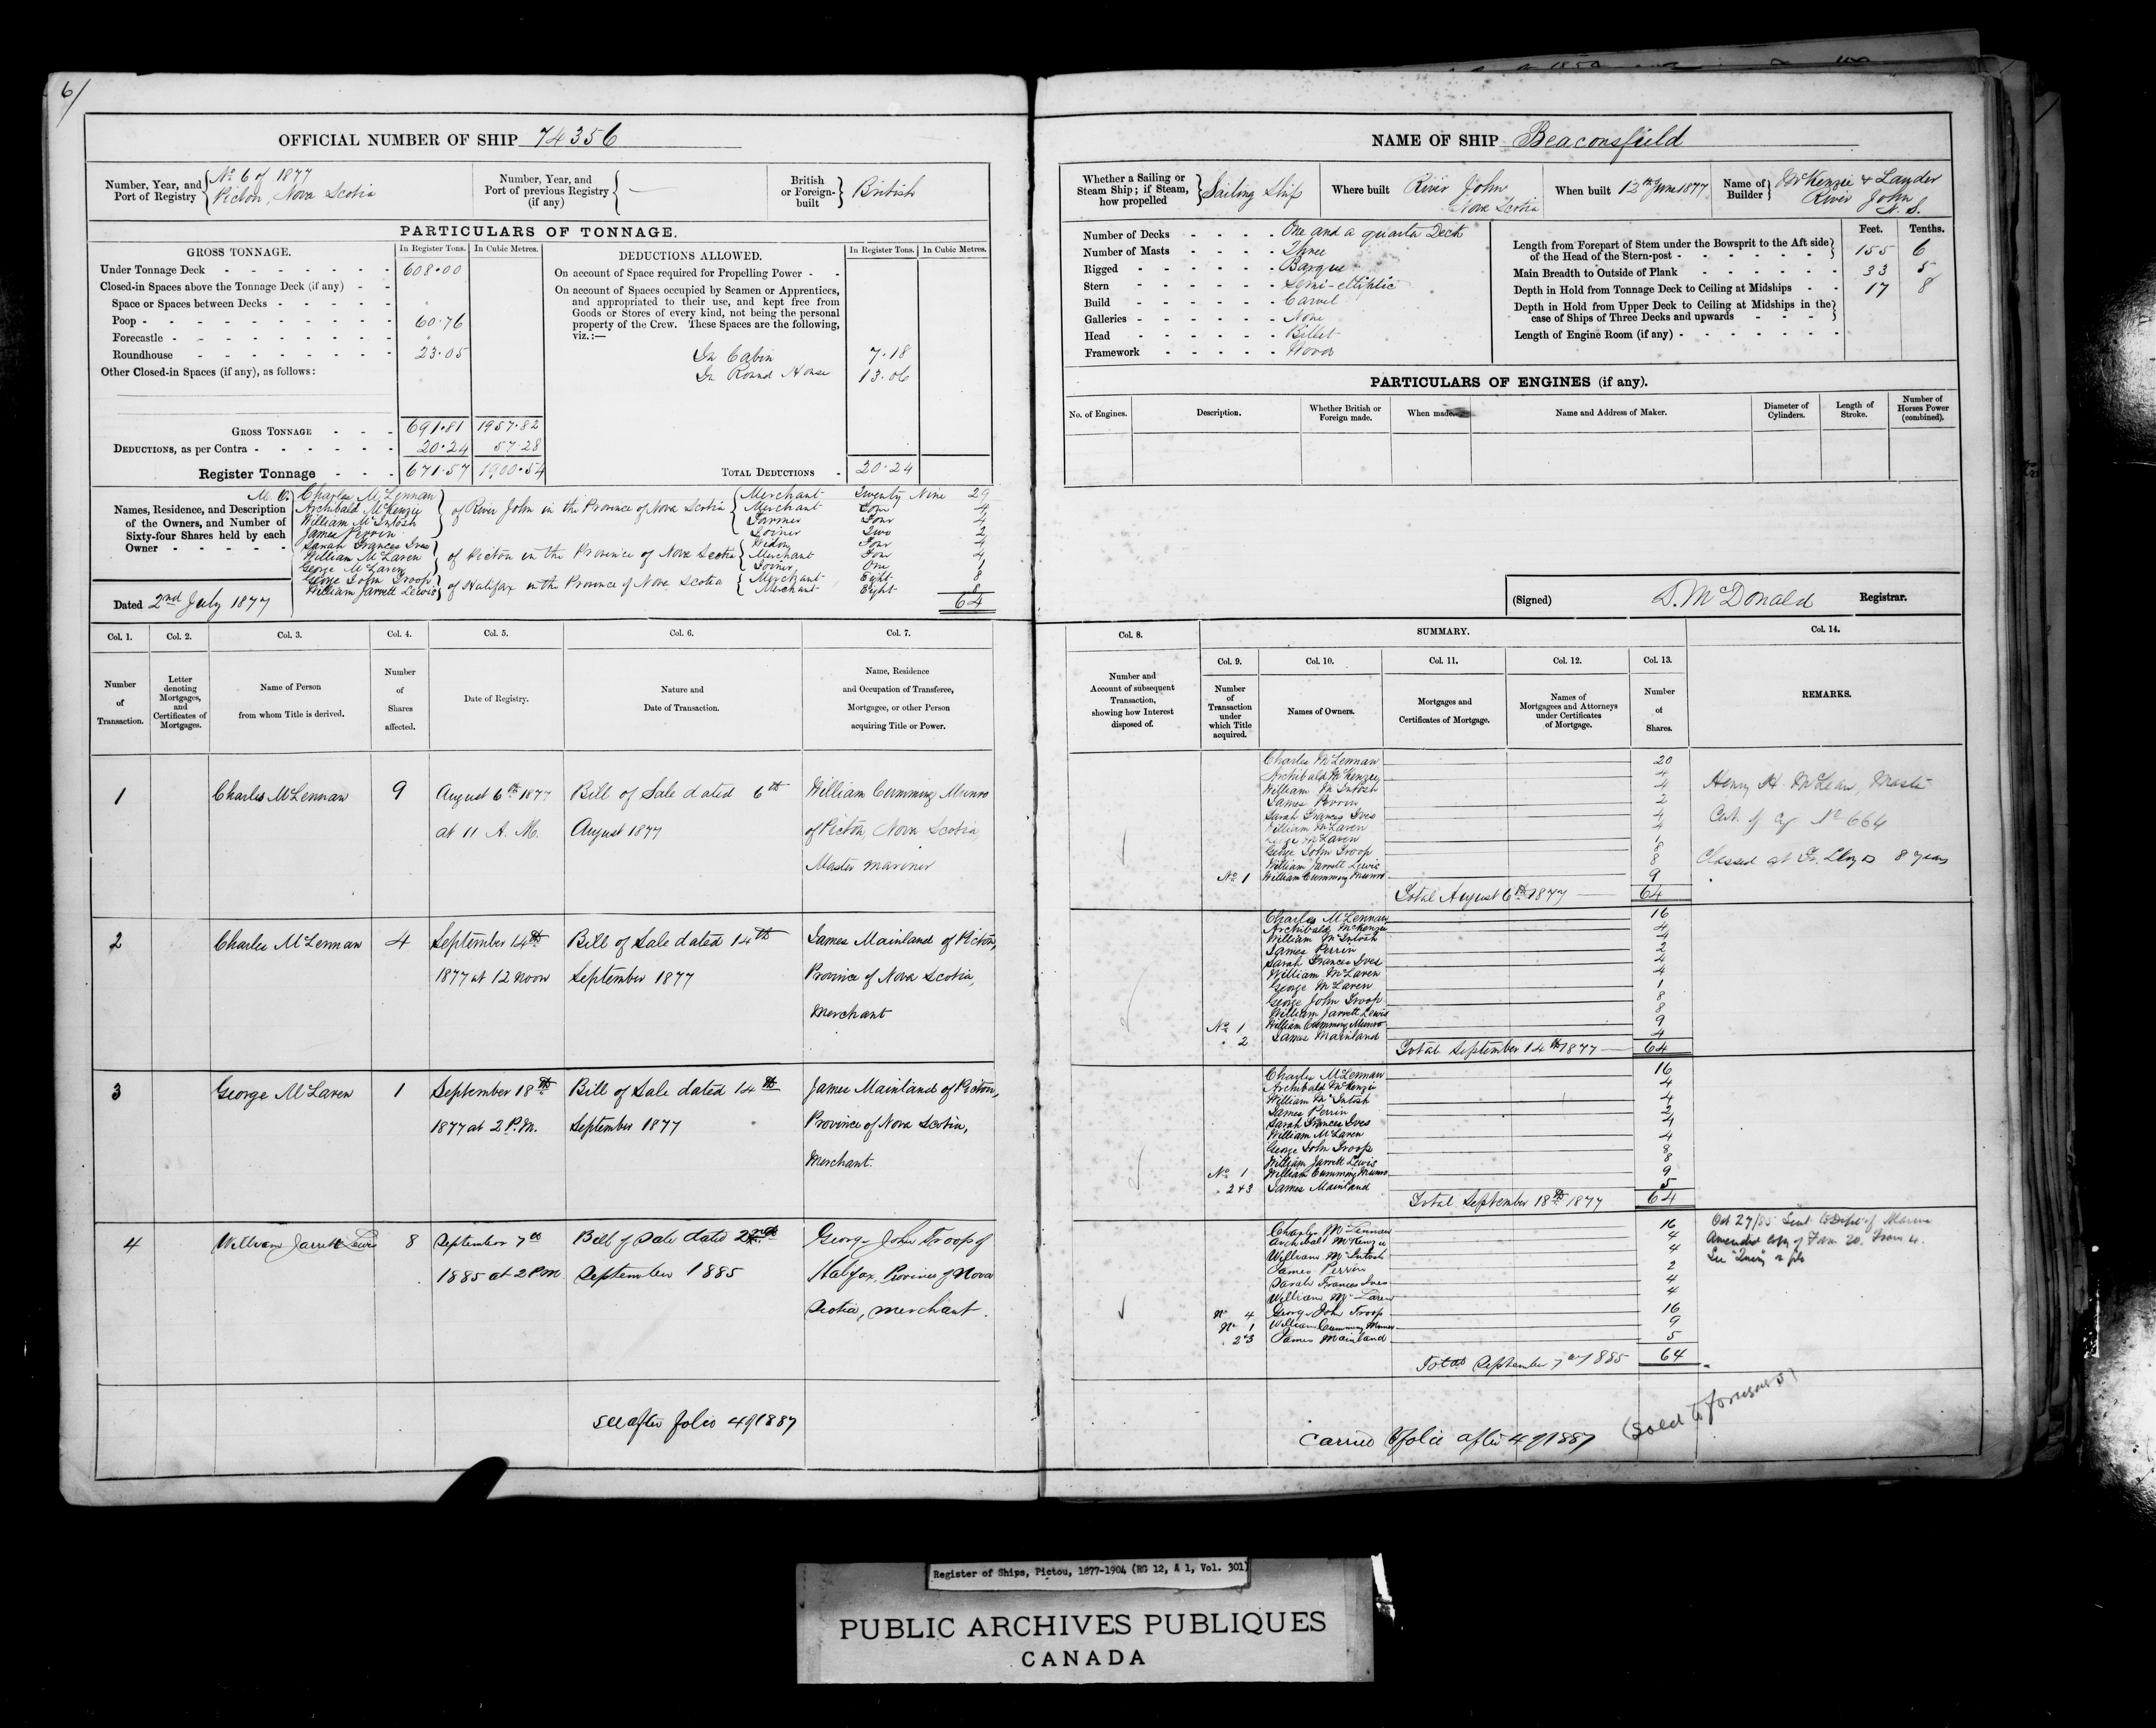 6/
OFFICIAL NUMBER OF SHIP 74356
Number, Year, and Port of Registry
No 6 of 1877
Pictou, Nova Scotia
Number, Year, and Port of previous Registry (if any) —
British or Foreign-built
British
PARTICULARS OF TONNAGE.
GROSS TONNAGE.
In Register Tons. In Cubic Metres.
Under Tonnage Deck 608.00
Closed-in Spaces above the Tonnage Deck (if any)
Space or Spaces between Decks
Poop 60.76
Forecastle
Roundhouse 23.05
Other Closed-in Spaces (if any), as follows:
GROSS TONNAGE 691.81 1957.82
DEDUCTIONS, as per Contra 20.24 57.28
Register Tonnage 671.57 1900.54
DEDUCTIONS ALLOWED.
In Register Tons. In Cubic Metres.
On account of Space required for Propelling Power
On account of Spaces occupied by Seamen or Apprentices,
and appropriated to their use, and kept free from
Goods or Stores of every kind, not being the personal
property of the Crew. These Spaces are the following,
viz.:—
In Cabin 7.18
In Round House 13.06
TOTAL DEDUCTIONS 20.24
Names, Residence, and Description
of the Owners, and Number of
Sixty-four Shares held by each
Owner
M. O. Charles McLennan
Archibald McKenzie
William McIntosh
James Perrin
of River John in the Province of Nova Scotia
Merchant Twenty Nine 29
Merchant Four 4
Farmer Four 4
Joiner Two 2
Sarah Frances Ives
William McLaren
George McLaren
of Pictou in the Province of Nova Scotia
Widow Four 4
Merchant Four 4
Joiner One 1
George John Troop
William Jarrett Lewis
of Halifax in the Province of Nova Scotia
Merchant Eight 8
Merchant Eight 8
64
Dated 2nd July 1877
Col. 1. Col. 2. Col. 3. Col. 4. Col. 5. Col. 6. Col. 7.
Number of Transaction.
Letter denoting Mortgages, and Certificates of Mortgages.
Name of Person from whom Title is derived.
Number of Shares affected.
Date of Registry.
Nature and Date of Transaction.
Name, Residence and Occupation of Transferee, Mortgagee, or other Person acquiring Title or Power.
1 Charles McLennan 9 August 6th 1877 Bill of Sale dated 6th William Cumming Munro
at 11 A. M. August 1877 of Pictou, Nova Scotia,
Master mariner
2 Charles McLennan 4 September 14th Bill of Sale dated 14th James Mainland of Pictou,
1877 at 12 noon September 1877 Province of Nova Scotia,
Merchant
3 George McLaren 1 September 18th Bill of Sale dated 14th James Mainland of Pictou,
1877 at 2 P.M. September 1877 Province of Nova Scotia,
Merchant.
4 William Jarrett Lewis 8 September 7th Bill of Sale dated 2nd George John Troop of
1885 at 2 P.M September 1885 Halifax, Province of Nova
Scotia, merchant.
see after folio 4 of 1887
NAME OF SHIP Beaconsfield
Whether a Sailing or Steam Ship; if Steam, how propelled
Sailing Ship
Where built River John
Nova Scotia
When built 12th June 1877
Name of Builder McKenzie & Lauder
River John
N. S.
Number of Decks One and a quarter Deck
Number of Masts Three
Rigged Barque
Stern Semi-elliptic
Build Carvel
Galleries None
Head Billet
Framework Wood
Feet. Tenths.
Length from Forepart of Stem under the Bowsprit to the Aft side
of the Head of the Stern-post 155 6
Main Breadth to Outside of Plank 33 5
Depth in Hold from Tonnage Deck to Ceiling at Midships 17 8
Depth in Hold from Upper Deck to Ceiling at Midships in the
case of Ships of Three Decks and upwards
Length of Engine Room (if any)
PARTICULARS OF ENGINES (if any).
No. of Engines. Description. Whether British or Foreign made. When made. Name and Address of Maker. Diameter of Cylinders. Length of Stroke. Number of Horses Power (combined).
(Signed) D. McDonald Registrar.
Col. 8. SUMMARY. Col. 14.
Col. 9. Col. 10. Col. 11. Col. 12. Col. 13.
Number and Account of subsequent Transaction, showing how Interest disposed of.
Number of Transaction under which Title acquired.
Names of Owners.
Mortgages and Certificates of Mortgage.
Names of Mortgagees and Attorneys under Certificates of Mortgage.
Number of Shares.
REMARKS.
Charles McLennan 20
Archibald McKenzie 4
William McIntosh 4
James Perrin 2
Sarah Frances Ives 4
William McLaren 4
George McLaren 1
George John Troop 8
William Jarrett Lewis 8
No 1 William Cumming Munro 9
Total August 6th 1877 64
Henry H. McLean, Master
Cert. of Cy No 664
Classed at Fr. Lloyds 8 years
Charles McLennan 16
Archibald McKenzie 4
William McIntosh 4
James Perrin 2
Sarah Frances Ives 4
William McLaren 4
George McLaren 1
George John Troop 8
William Jarrett Lewis 8
No 1 William Cumming Munro 9
" 2 James Mainland 4
Total September 14th 1877 64
Charles McLennan 16
Archibald McKenzie 4
William McIntosh 4
James Perrin 2
Sarah Frances Ives 4
William McLaren 4
George John Troop 8
William Jarrett Lewis 8
No 1 William Cumming Munro 9
" 2+3 James Mainland 5
Total September 18th 1877 64
Charles McLennan 16
Archibald McKenzie 4
William McIntosh 4
James Perrin 2
Sarah Frances Ives 4
William McLaren 4
No 4 George John Troop 16
No 1 William Cumming Munro 9
" 2+3 James Mainland 5
Total September 7th 1885 64
Oct 27/85 Sent to Dept of Marine
Amended copy of Form 20. From 4.
See
carried to folio after 4 of 1887
(Sold to foreigners)
Register of Ships, Pictou, 1877-1904 (RG 12, A 1, Vol. 301)
PUBLIC ARCHIVES PUBLIQUES
CANADA